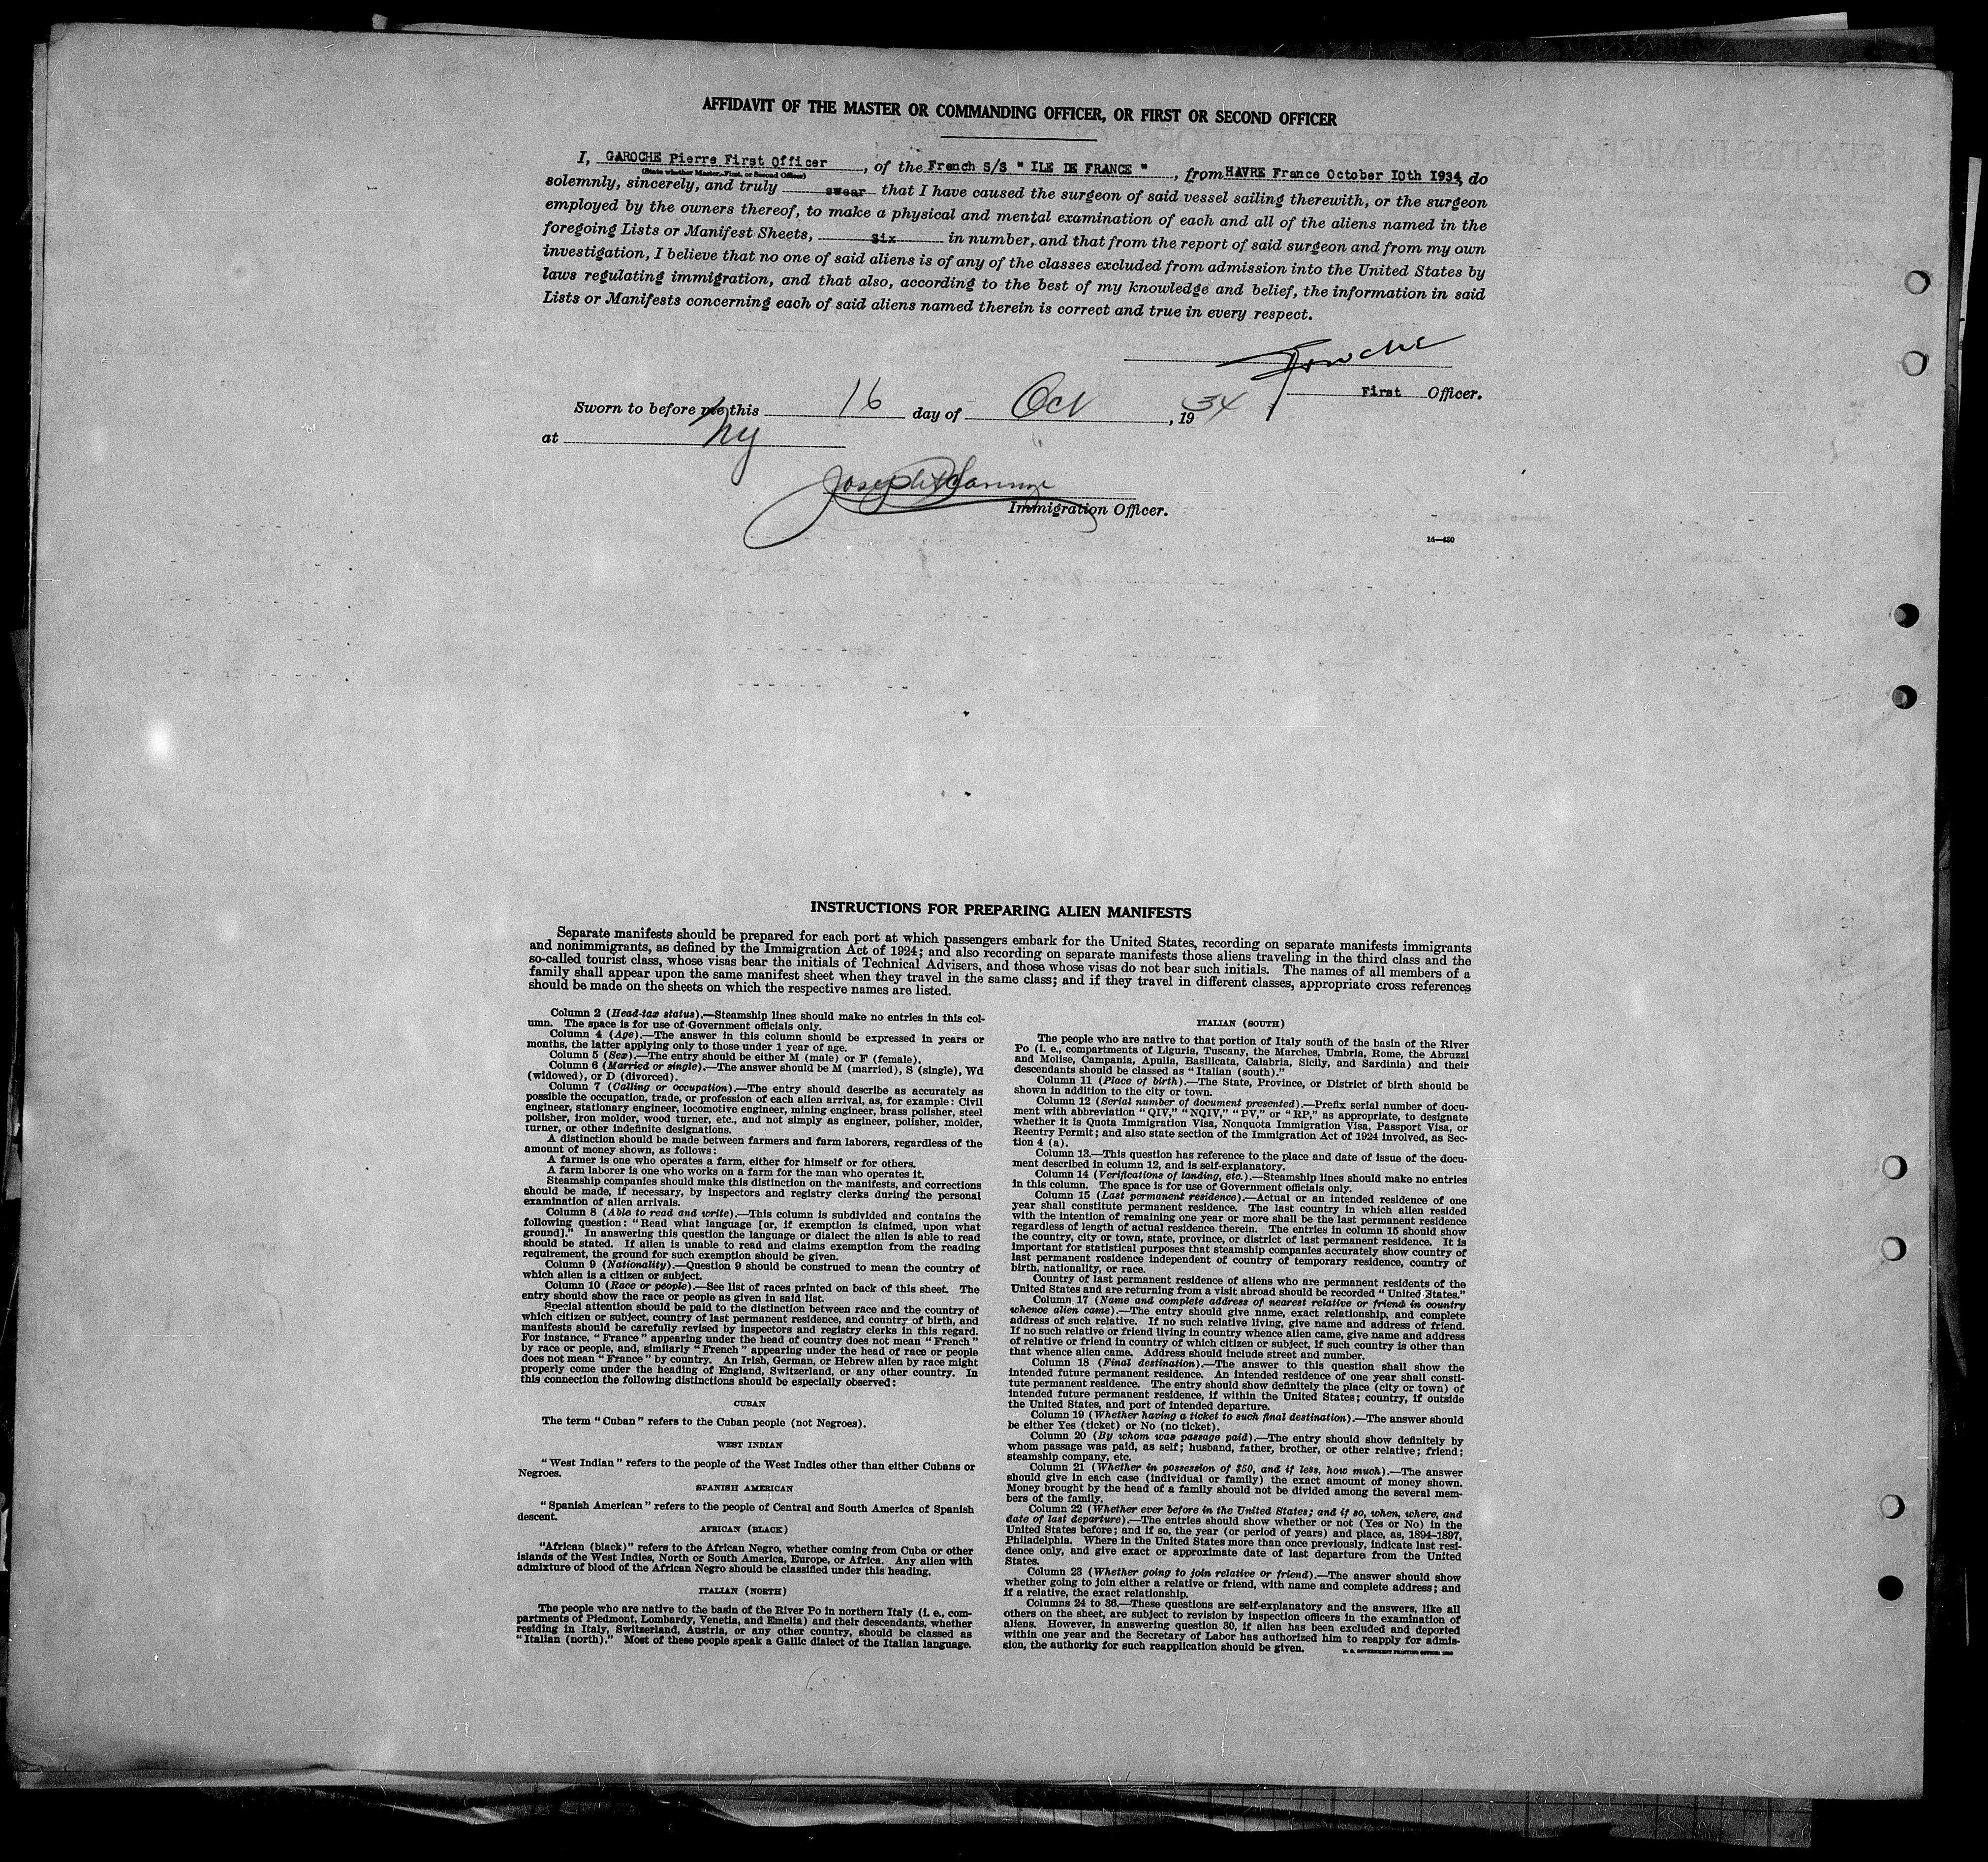 AFFIDAVIT OF THE MASTER OR COMMANDING OFFICER, OR FIRST OR SECOND OFFICER
I, GAROCHE Pierre First Officer, of the French S/S " ILE DE FRANCE ", from HAVRE France October 10th 1934, do
(State whether Master, First, or Second Officer)
solemnly, sincerely, and truly swear that I have caused the surgeon of said vessel sailing therewith, or the surgeon
employed by the owners thereof, to make a physical and mental examination of each and all of the aliens named in the
foregoing Lists or Manifest Sheets, Six in number, and that from the report of said surgeon and from my own
investigation, I believe that no one of said aliens is of any of the classes excluded from admission into the United States by
laws regulating immigration, and that also, according to the best of my knowledge and belief, the information in said
Lists or Manifests concerning each of said aliens named therein is correct and true in every respect.
Garoche
First Officer.
Sworn to before me this 16 day of Oct, 1934
at NY
Joseph
Immigration Officer.
14—430
INSTRUCTIONS FOR PREPARING ALIEN MANIFESTS
Separate manifests should be prepared for each port at which passengers embark for the United States, recording on separate manifests immigrants
and nonimmigrants, as defined by the Immigration Act of 1924; and also recording on separate manifests those aliens traveling in the third class and the
so-called tourist class, whose visas bear the initials of Technical Advisers, and those whose visas do not bear such initials. The names of all members of a
family shall appear upon the same manifest sheet when they travel in the same class; and if they travel in different classes, appropriate cross references
should be made on the sheets on which the respective names are listed.
Column 2 (Head-tax status).—Steamship lines should make no entries in this col-
umn. The space is for use of Government officials only.
Column 4 (Age).—The answer in this column should be expressed in years or
months, the latter applying only to those under 1 year of age.
Column 5 (Sex).—The entry should be either M (male) or F (female).
Column 6 (Married or single).—The answer should be M (married), S (single), Wd
(widowed), or D (divorced).
Column 7 (Calling or occupation).—The entry should describe as accurately as
possible the occupation, trade, or profession of each alien arrival, as, for example: Civil
engineer, stationary engineer, locomotive engineer, mining engineer, brass polisher, steel
polisher, iron molder, wood turner, etc., and not simply as engineer, polisher, molder,
turner, or other indefinite designations.
A distinction should be made between farmers and farm laborers, regardless of the
amount of money shown, as follows:
A farmer is one who operates a farm, either for himself or for others.
A farm laborer is one who works on a farm for the man who operates it.
Steamship companies should make this distinction on the manifests, and corrections
should be made, if necessary, by inspectors and registry clerks during the personal
examination of alien arrivals.
Column 8 (Able to read and write).—This column is subdivided and contains the
following question: "Read what language [or, if exemption is claimed, upon what
ground]." In answering this question the language or dialect the alien is able to read
should be stated. If alien is unable to read and claims exemption from the reading
requirement, the ground for such exemption should be given.
Column 9 (Nationality).—Question 9 should be construed to mean the country of
which alien is a citizen or subject.
Column 10 (Race or people).—See list of races printed on back of this sheet. The
entry should show the race or people as given in said list.
Special attention should be paid to the distinction between race and the country of
which citizen or subject, country of last permanent residence, and country of birth, and
manifests should be carefully revised by inspectors and registry clerks in this regard.
For instance, "France" appearing under the head of country does not mean "French"
by race or people, and, similarly "French" appearing under the head of race or people
does not mean "France" by country. An Irish, German, or Hebrew alien by race might
properly come under the heading of England, Switzerland, or any other country. In
this connection the following distinctions should be especially observed:
CUBAN
The term "Cuban" refers to the Cuban people (not Negroes).
WEST INDIAN
"West Indian" refers to the people of the West Indies other than either Cubans or
Negroes.
SPANISH AMERICAN
"Spanish American" refers to the people of Central and South America of Spanish
descent.
AFRICAN (BLACK)
"African (black)" refers to the African Negro, whether coming from Cuba or other
islands of the West Indies, North or South America, Europe, or Africa. Any alien with
admixture of blood of the African Negro should be classified under this heading.
ITALIAN (NORTH)
The people who are native to the basin of the River Po in northern Italy (i. e., com-
partments of Piedmont, Lombardy, Venetia, and Emelia) and their descendants, whether
residing in Italy, Switzerland, Austria, or any other country, should be classed as
"Italian (north)." Most of these people speak a Gallic dialect of the Italian language.
ITALIAN (SOUTH)
The people who are native to that portion of Italy south of the basin of the River
Po (i. e., compartments of Liguria, Tuscany, the Marches, Umbria, Rome, the Abruzzi
and Molise, Campania, Apulia, Basilicata, Calabria, Sicily, and Sardinia) and their
descendants should be classed as "Italian (south)."
Column 11 (Place of birth).—The State, Province, or District of birth should be
shown in addition to the city or town.
Column 12 (Serial number of document presented).—Prefix serial number of docu-
ment with abbreviation "QIV," "NQIV," "PV," or "RP," as appropriate, to designate
whether it is Quota Immigration Visa, Nonquota Immigration Visa, Passport Visa, or
Reentry Permit; and also state section of the Immigration Act of 1924 involved, as Sec-
tion 4 (a).
Column 13.—This question has reference to the place and date of issue of the docu-
ment described in column 12, and is self-explanatory.
Column 14 (Verifications of landing, etc.).—Steamship lines should make no entries
in this column. The space is for use of Government officials only.
Column 15 (Last permanent residence).—Actual or an intended residence of one
year shall constitute permanent residence. The last country in which alien resided
with the intention of remaining one year or more shall be the last permanent residence
regardless of length of actual residence therein. The entries in column 15 should show
the country, city or town, state, province, or district of last permanent residence. It is
important for statistical purposes that steamship companies accurately show country of
last permanent residence independent of country of temporary residence, country of
birth, nationality, or race.
Country of last permanent residence of aliens who are permanent residents of the
United States and are returning from a visit abroad should be recorded "United States."
Column 17 (Name and complete address of nearest relative or friend in country
whence alien came).—The entry should give name, exact relationship, and complete
address of such relative. If no such relative living, give name and address of friend.
If no such relative or friend living in country whence alien came, give name and address
of relative or friend in country of which citizen or subject, if such country is other than
that whence alien came. Address should include street and number.
Column 18 (Final destination).—The answer to this question shall show the
intended future permanent residence. An intended residence of one year shall consti-
tute permanent residence. The entry should show definitely the place (city or town) of
intended future permanent residence, if within the United States; country, if outside
the United States, and port of intended departure.
Column 19 (Whether having a ticket to such final destination).—The answer should
be either Yes (ticket) or No (no ticket).
Column 20 (By whom was passage paid).—The entry should show definitely by
whom passage was paid, as self; husband, father, brother, or other relative; friend;
steamship company, etc.
Column 21 (Whether in possession of $50, and if less, how much).—The answer
should give in each case (individual or family) the exact amount of money shown.
Money brought by the head of a family should not be divided among the several mem-
bers of the family.
Column 22 (Whether ever before in the United States; and if so, when, where, and
date of last departure).—The entries should show whether or not (Yes or No) in the
United States before; and if so, the year (or period of years) and place, as, 1894–1897,
Philadelphia. Where in the United States more than once previously, indicate last resi-
dence only, and give exact or approximate date of last departure from the United
States.
Column 23 (Whether going to join relative or friend).—The answer should show
whether going to join either a relative or friend, with name and complete address; and
if a relative, the exact relationship.
Columns 24 to 36.—These questions are self-explanatory and the answers, like all
others on the sheet, are subject to revision by inspection officers in the examination of
aliens. However, in answering question 30, if alien has been excluded and deported
within one year and the Secretary of Labor has authorized him to reapply for admis-
sion, the authority for such reapplication should be given.
U. S. GOVERNMENT PRINTING OFFICE